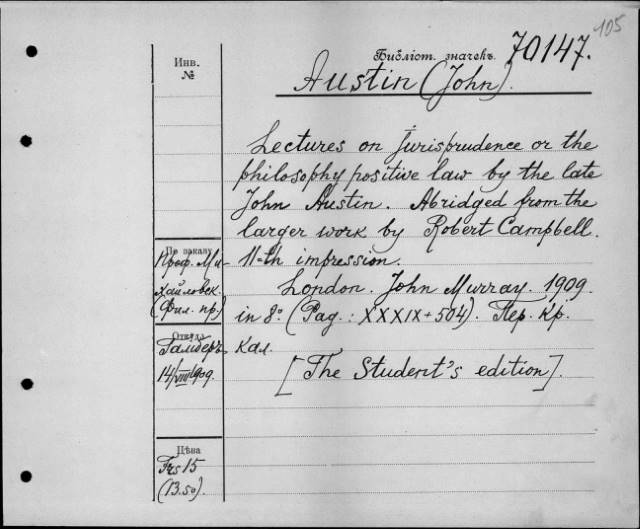 105
Инв.
№
Библіот. значекъ 70147.
Austin (John).
Lectures on Jurisprudence or the
philosophy positive law by the late
John Austin. Abridged from the
larger work by Robert Campbell.
11-th impression.
London. John Murray. 1909
in 8° (Pag.: XXXIX + 504). Пер. Кр.
кал.
[The Student's edition].
По заказу
Проф. Ми-
хайловск.
(Фил. пр.)
Откуда
Гамберъ
14/VIII 1909.
Цѣна
Frs 15
(13.50).